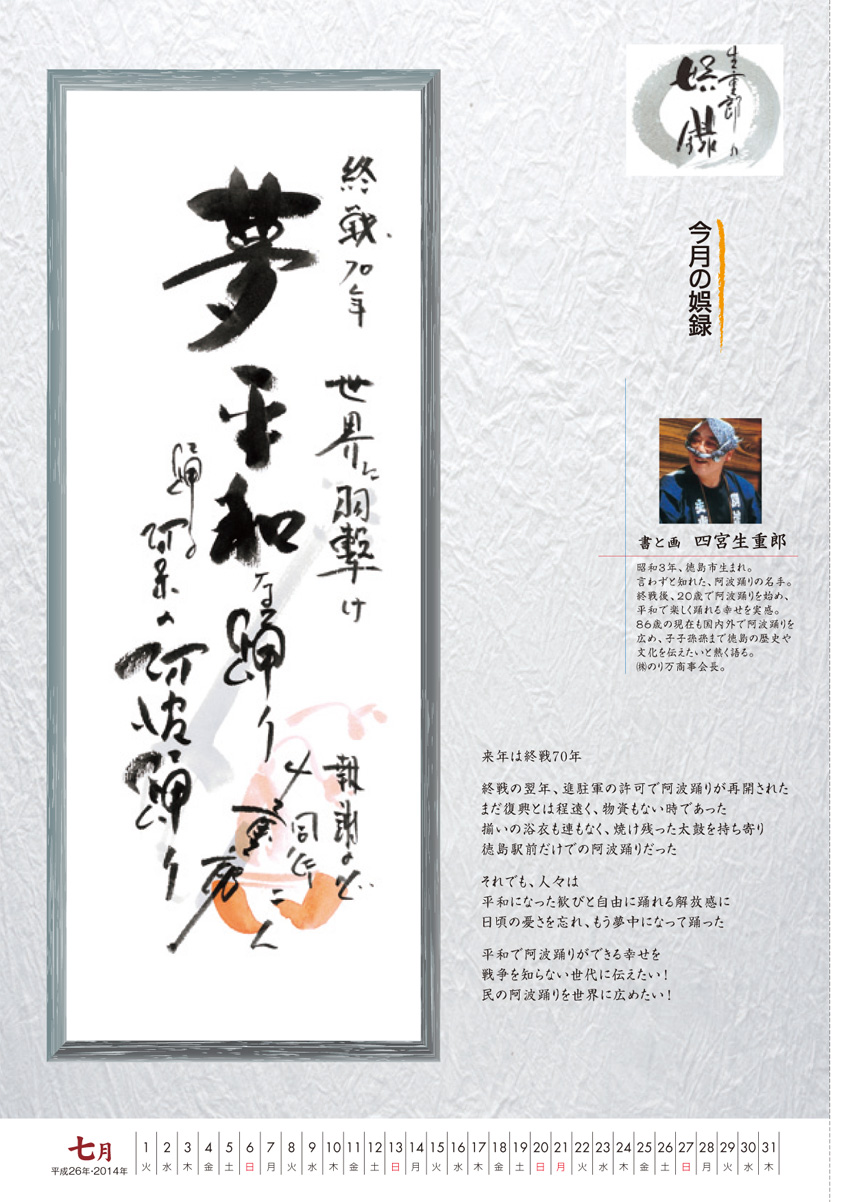 終戦70年 世界に羽撃け
夢平和な踊り
踊る阿呆の阿波踊り
報謝の心
同行二人
生重郎
生重郎の
娯録
今月の娯録
書と画 四宮生重郎
昭和3年、徳島市生まれ。
言わずと知れた、阿波踊りの名手。
終戦後、20歳で阿波踊りを始め、
平和で楽しく踊れる幸せを実感。
86歳の現在も国内外で阿波踊りを
広め、子子孫孫まで徳島の歴史や
文化を伝えたいと熱く語る。
㈱のり万商事会長。
来年は終戦70年
終戦の翌年、進駐軍の許可で阿波踊りが再開された
まだ復興とは程遠く、物資もない時であった
揃いの浴衣も連もなく、焼け残った太鼓を持ち寄り
徳島駅前だけでの阿波踊りだった
それでも、人々は
平和になった歓びと自由に踊れる解放感に
日頃の憂さを忘れ、もう夢中になって踊った
平和で阿波踊りができる幸せを
戦争を知らない世代に伝えたい!
民の阿波踊りを世界に広めたい!
七月
平成26年・2014年
1 2 3 4 5 6 7 8 9 10 11 12 13 14 15 16 17 18 19 20 21 22 23 24 25 26 27 28 29 30 31
火 水 木 金 土 日 月 火 水 木 金 土 日 月 火 水 木 金 土 日 月 火 水 木 金 土 日 月 火 水 木